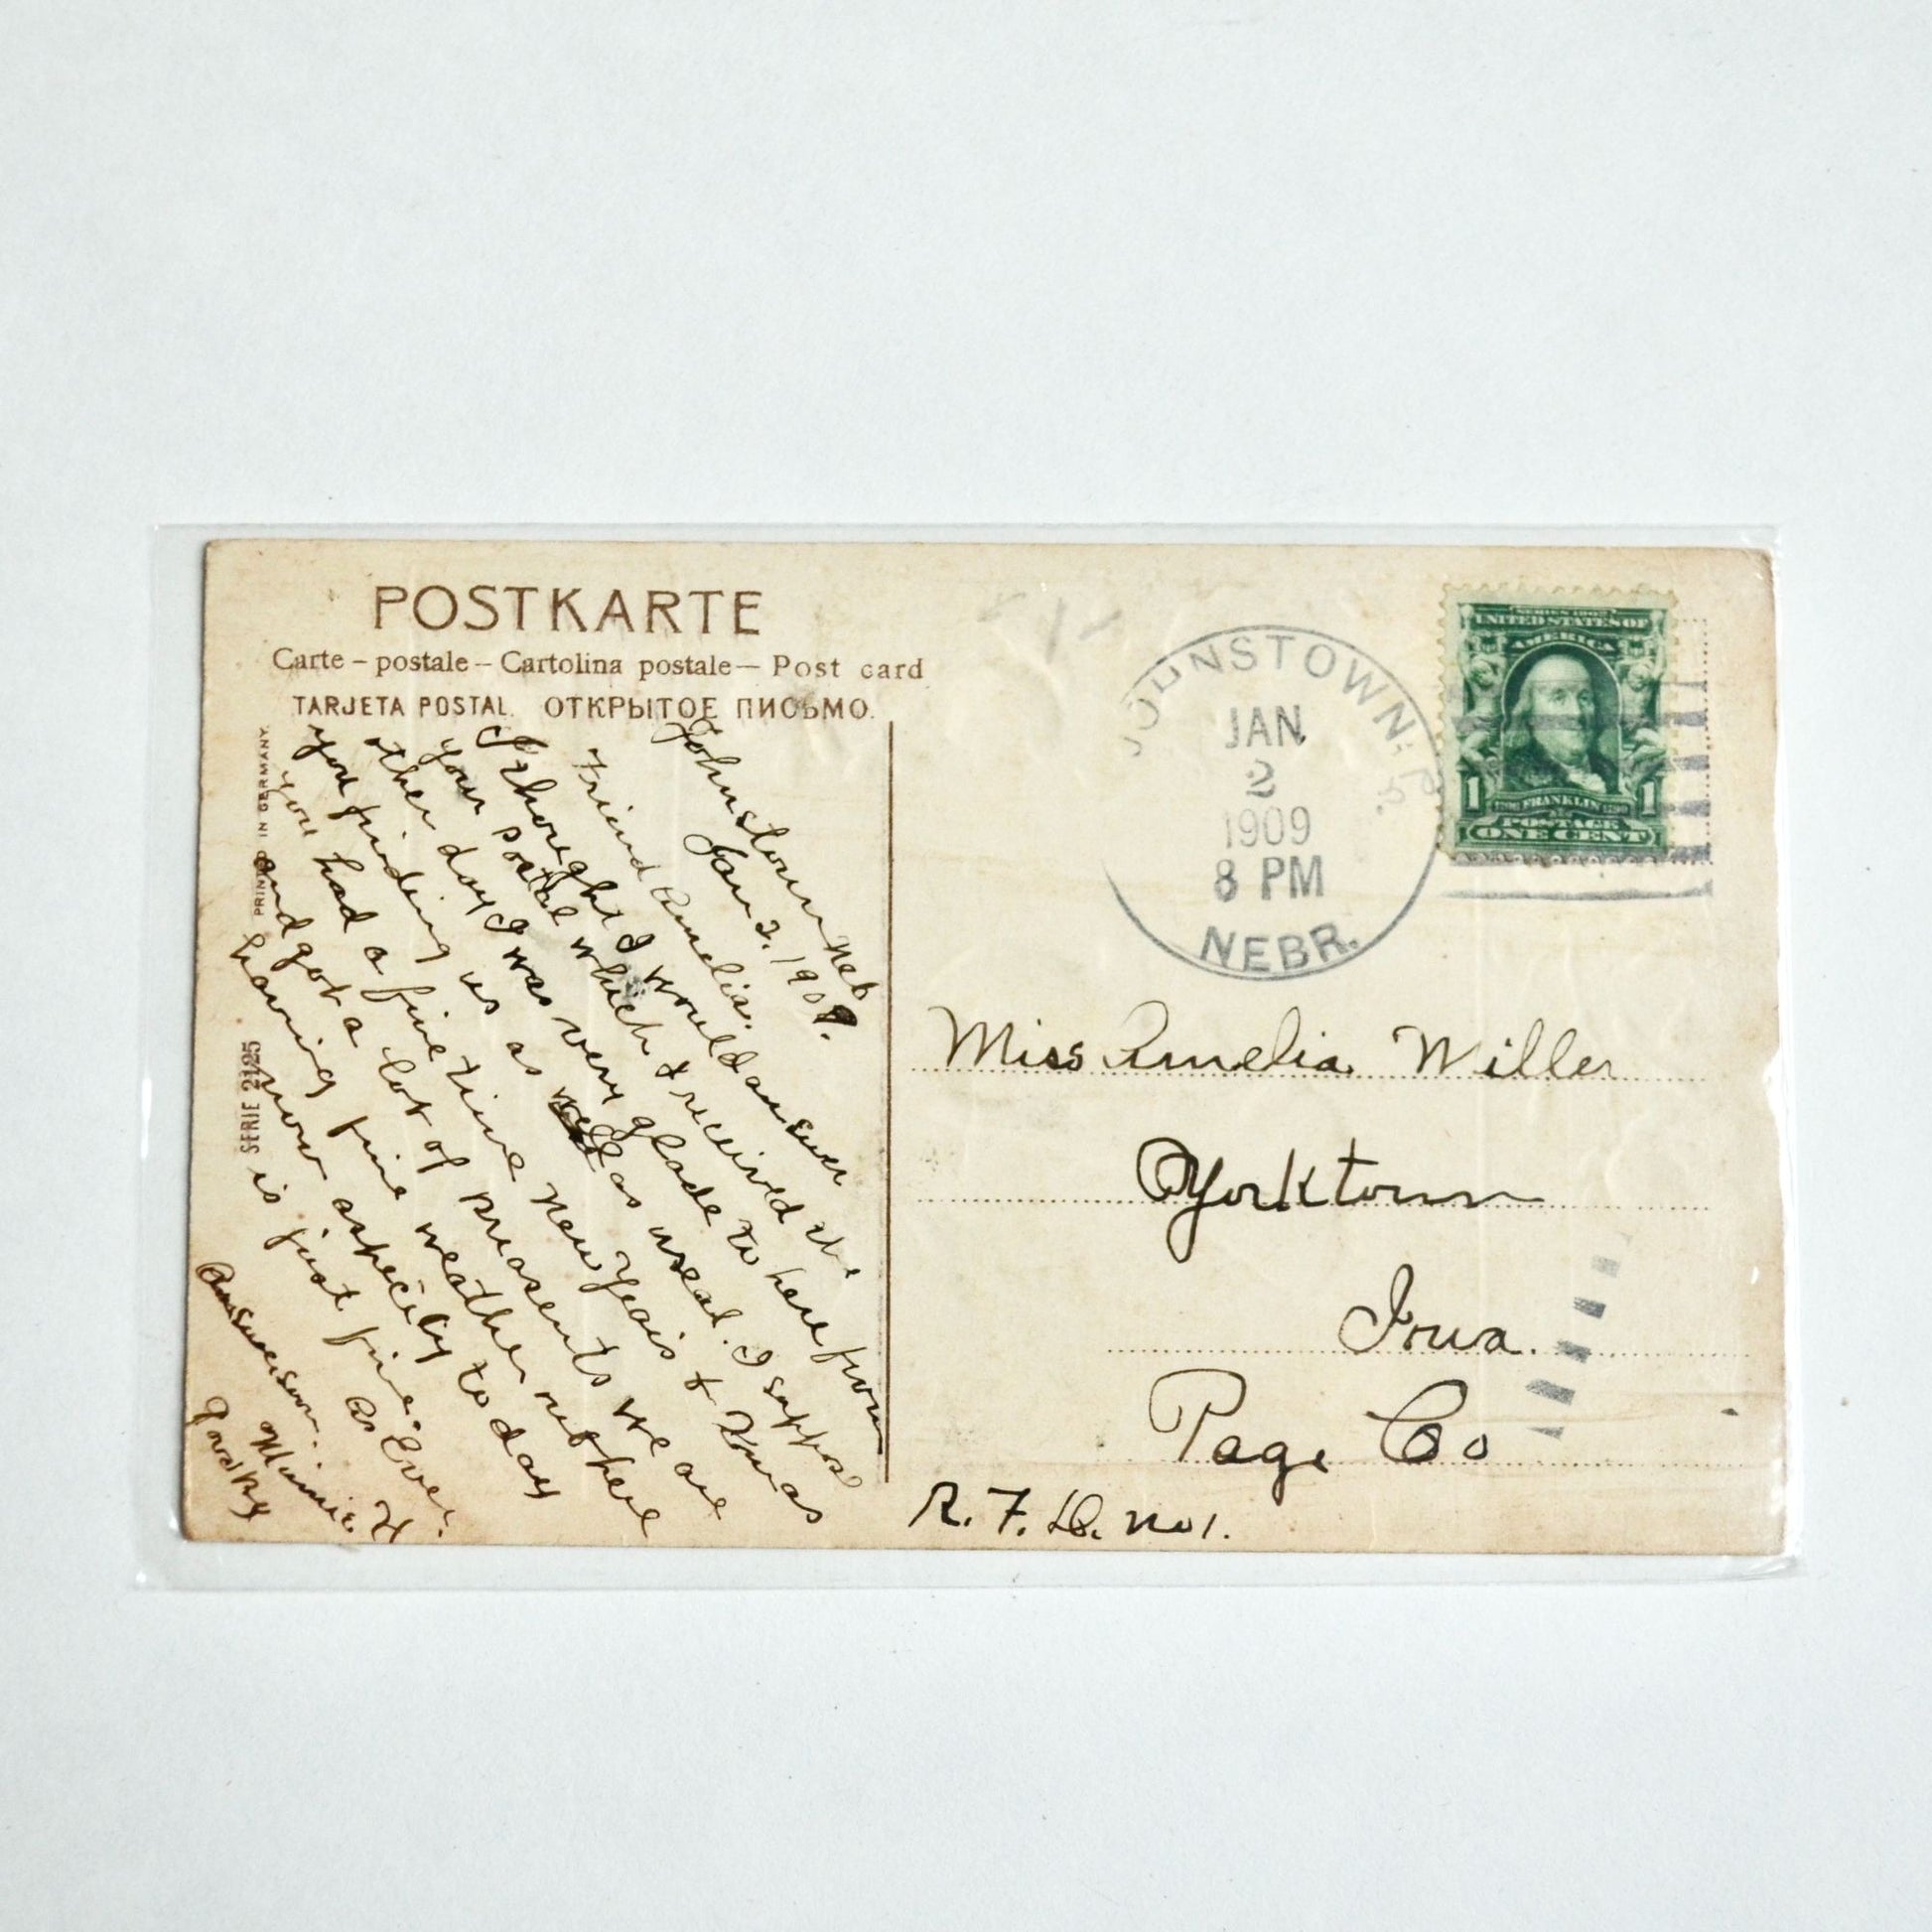 POSTKARTE
Carte – postale – Cartolina postale – Post card
TARJETA POSTAL. ОТКРЫТОЕ ПИСЬМО.
PRINTED IN GERMANY.
SERIE 2125
Johnstown Neb
Jan 2. 1909.
Friend Amelia.
I thought I would answer
your postal which I received the
other day I was very glade to here from
you finding us as well as useal. I suppose
you had a fine time New Years & Xmas
and got a lot of preasents we are
having fine weather out here
now aspecily to day
is just fine.
As Ever.
Answer soon.
Minnie. H
JOHNSTOWN.
JAN
2
1909
8 PM
NEBR.
SERIES 1902
UNITED STATES OF
AMERICA
1 FRANKLIN 1
POSTAGE
ONE CENT
Miss Amelia Willer
Yorktown
Iowa.
Page Co
R. F. D. No 1.